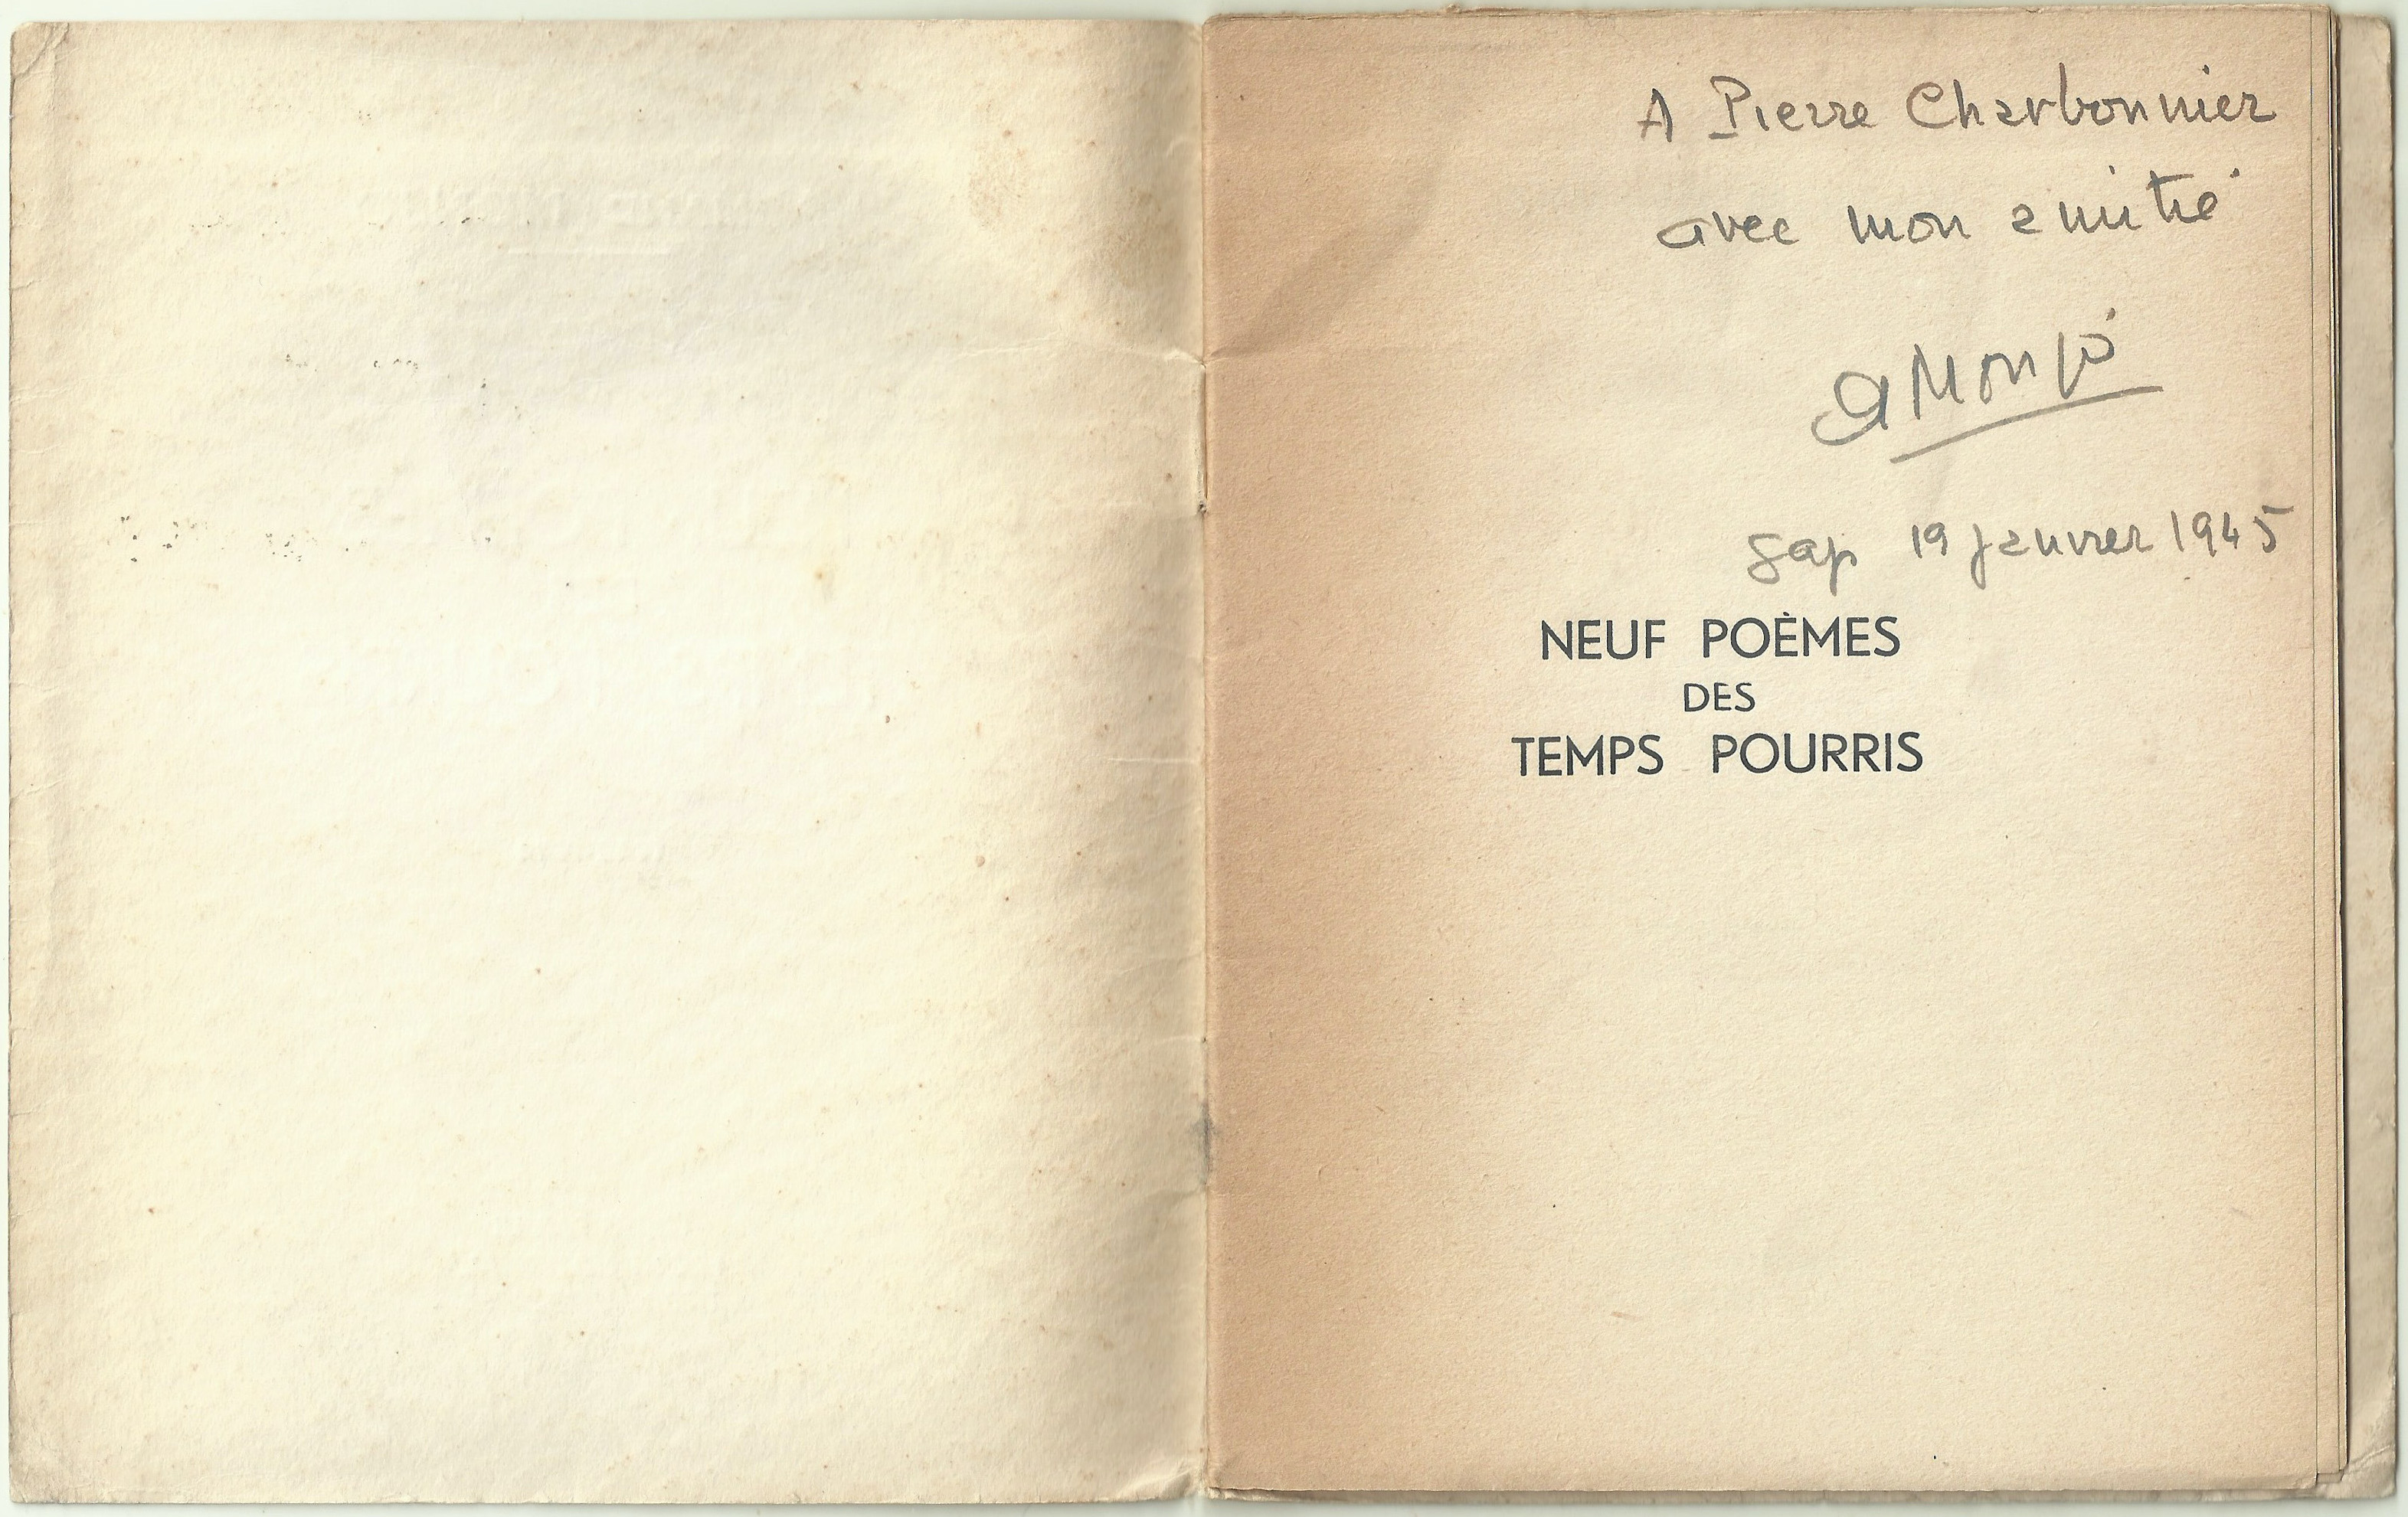 A Pierre Charbonnier
avec mon amitié
AMonjo
Gap 19 Janvier 1945
NEUF POÈMES
DES
TEMPS POURRIS